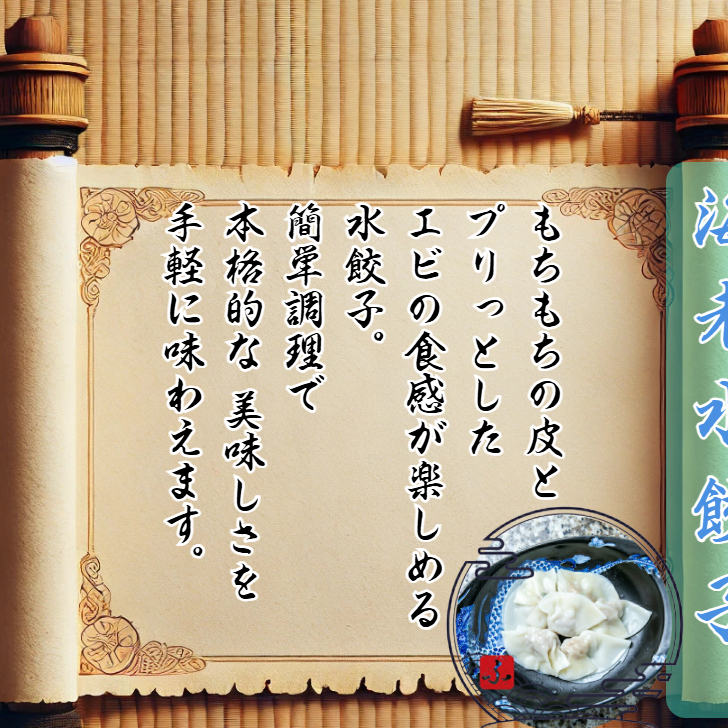 海老水餃子
もちもちの皮と
プリっとした
エビの食感が楽しめる
水餃子。
簡単調理で
本格的な 美味しさを
手軽に味わえます。